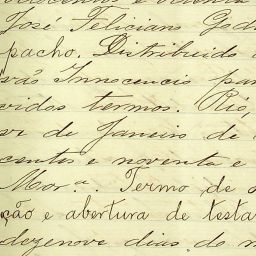 José Feliciano God
pacho. Distribuido
vão Innocencio par
vidos termos. Rio,
vi de Janeiro de
centos e noventa e
Mor.ª. Termo de a
ção e abertura de testa
dezenove dias do m